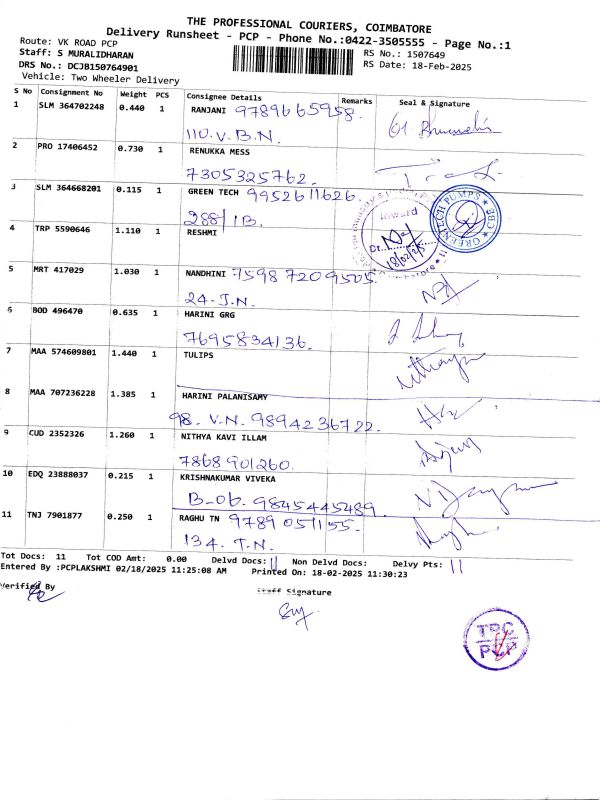 THE PROFESSIONAL COURIERS, COIMBATORE
Delivery Runsheet - PCP - Phone No.:0422-3505555 - Page No.:1
Route: VK ROAD PCP
Staff: S MURALIDHARAN
RS No.: 1507649
DRS No.: DCJB150764901
RS Date: 18-Feb-2025
Vehicle: Two Wheeler Delivery
S No Consignment No Weight PCS Consignee Details Remarks Seal & Signature
1 SLM 364702248 0.440 1 RANJANI 9789665958.
110. V. B.N.
2 PRO 17406452 0.730 1 RENUKKA MESS
7305325762.
3 SLM 364668201 0.115 1 GREEN TECH 9952611626.
288/1B.
Inward
18/02/25
GREENTECH PUMPS ★ CBE
4 TRP 5590646 1.110 1 RESHMI
5 MRT 417029 1.030 1 NANDHINI 75987209505.
24. J.N.
6 BOD 496470 0.635 1 HARINI GRG
7695834136.
7 MAA 574609801 1.440 1 TULIPS
8 MAA 707236228 1.385 1 HARINI PALANISAMY
98. V.N. 9894236722.
9 CUD 2352326 1.260 1 NITHYA KAVI ILLAM
7868901260.
10 EDQ 23888037 0.215 1 KRISHNAKUMAR VIVEKA
B-06. 9845445489.
11 TNJ 7901877 0.250 1 RAGHU TN 9789051155.
134. T.N.
Tot Docs: 11 Tot COD Amt: 0.00 Delvd Docs: 11 Non Delvd Docs: Delvy Pts: 11
Entered By :PCPLAKSHMI 02/18/2025 11:25:08 AM Printed On: 18-02-2025 11:30:23
Verified By
Staff Signature
TPC
PCP